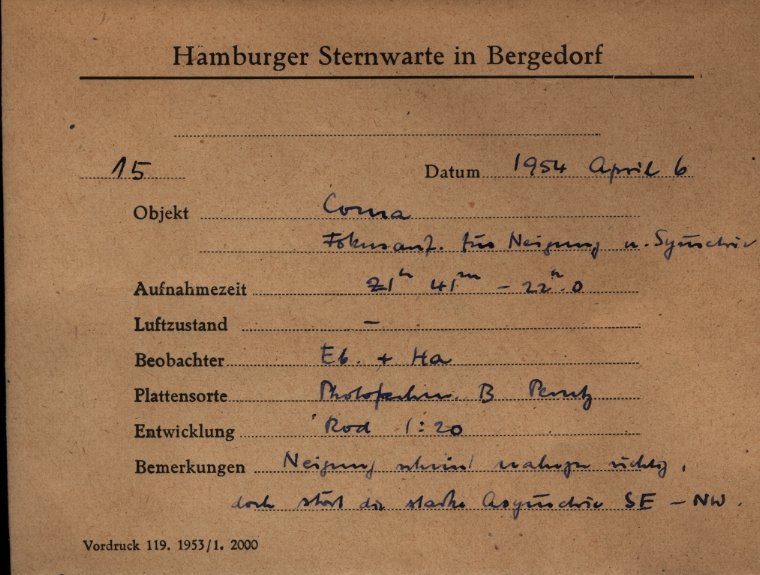 Hamburger Sternwarte in Bergedorf
15 Datum 1954 April 6
Objekt Coma
Fokusauf. für Neigung u. Symmetrie
Aufnahmezeit 21h 41m - 22h.0
Luftzustand -
Beobachter Eb. + Ha
Plattensorte B Perutz
Entwicklung Rod 1:20
Bemerkungen Neigung scheint nahezu richtig,
doch stört die starke Asymmetrie SE - NW.
Vordruck 119. 1953/1. 2000